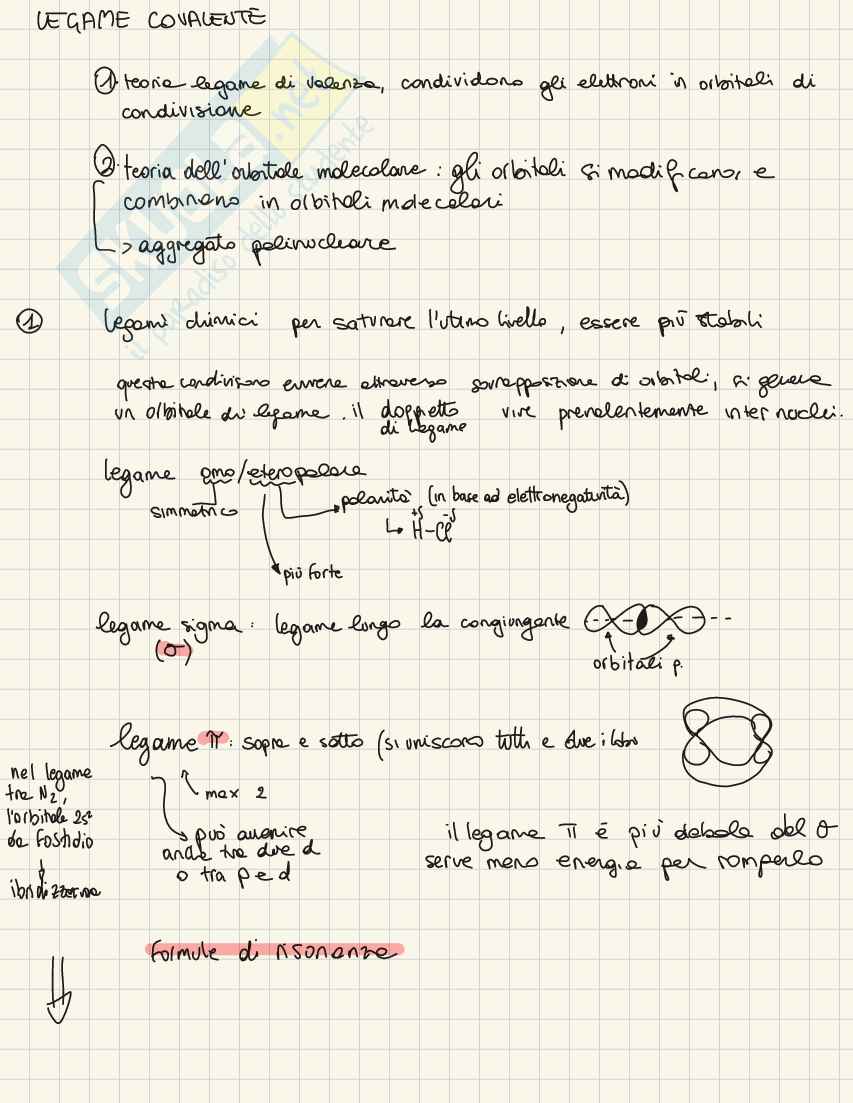 LEGAME COVALENTE
1. teoria legame di valenza, condividono gli elettroni in orbitali di
condivisione
2. teoria dell'orbitale molecolare: gli orbitali si modificano, e
combinano in orbitali molecolari
> aggregato polinucleare
1 legami chimici per saturare l'ultimo livello, essere più stabili
questa condivisione avviene attraverso sovrapposizione di orbitali, si genera
un orbitale di legame. il doppietto vive prevalentemente inter nuclei.
di legame
legame omo/eteropolare
simmetrico
polarità (in base ad elettronegatività)
+δ -δ
H-Cl
più forte
legame sigma: legame lungo la congiungente
(σ)
orbitali p.
legame π: sopra e sotto (si uniscono tutti e due i lobi
max 2
può avvenire
anche tra due d
o tra p e d
nel legame
tra N2,
l'orbitale 2s²
da fastidio
il legame π è più debole del σ
serve meno energia per romperlo
formule di risonanza
SKUOLA.net
il paradiso dello studente